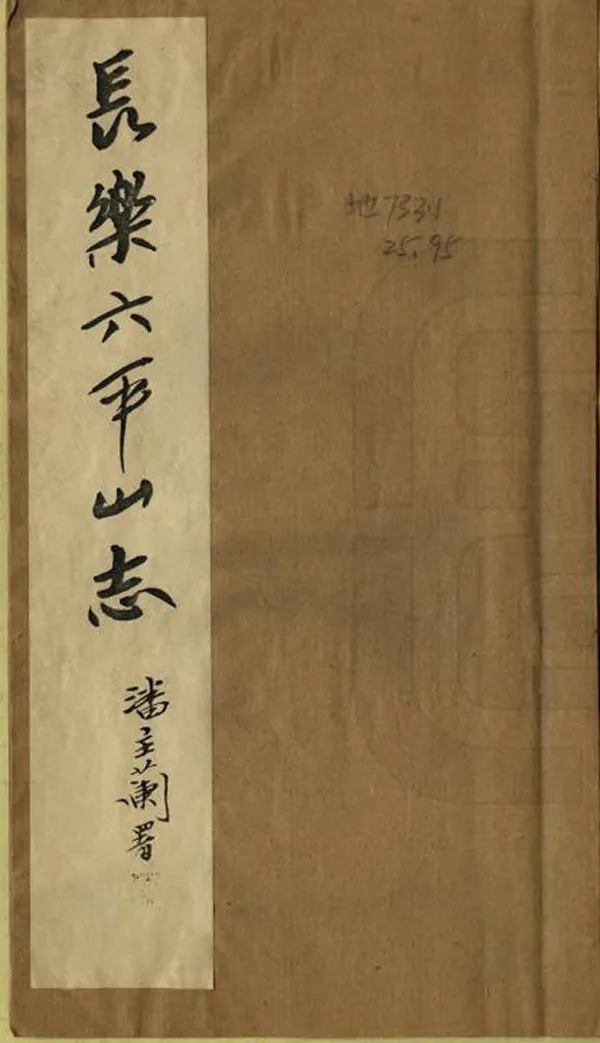 長樂六平山志
潘主蘭署
地733.1
25.95